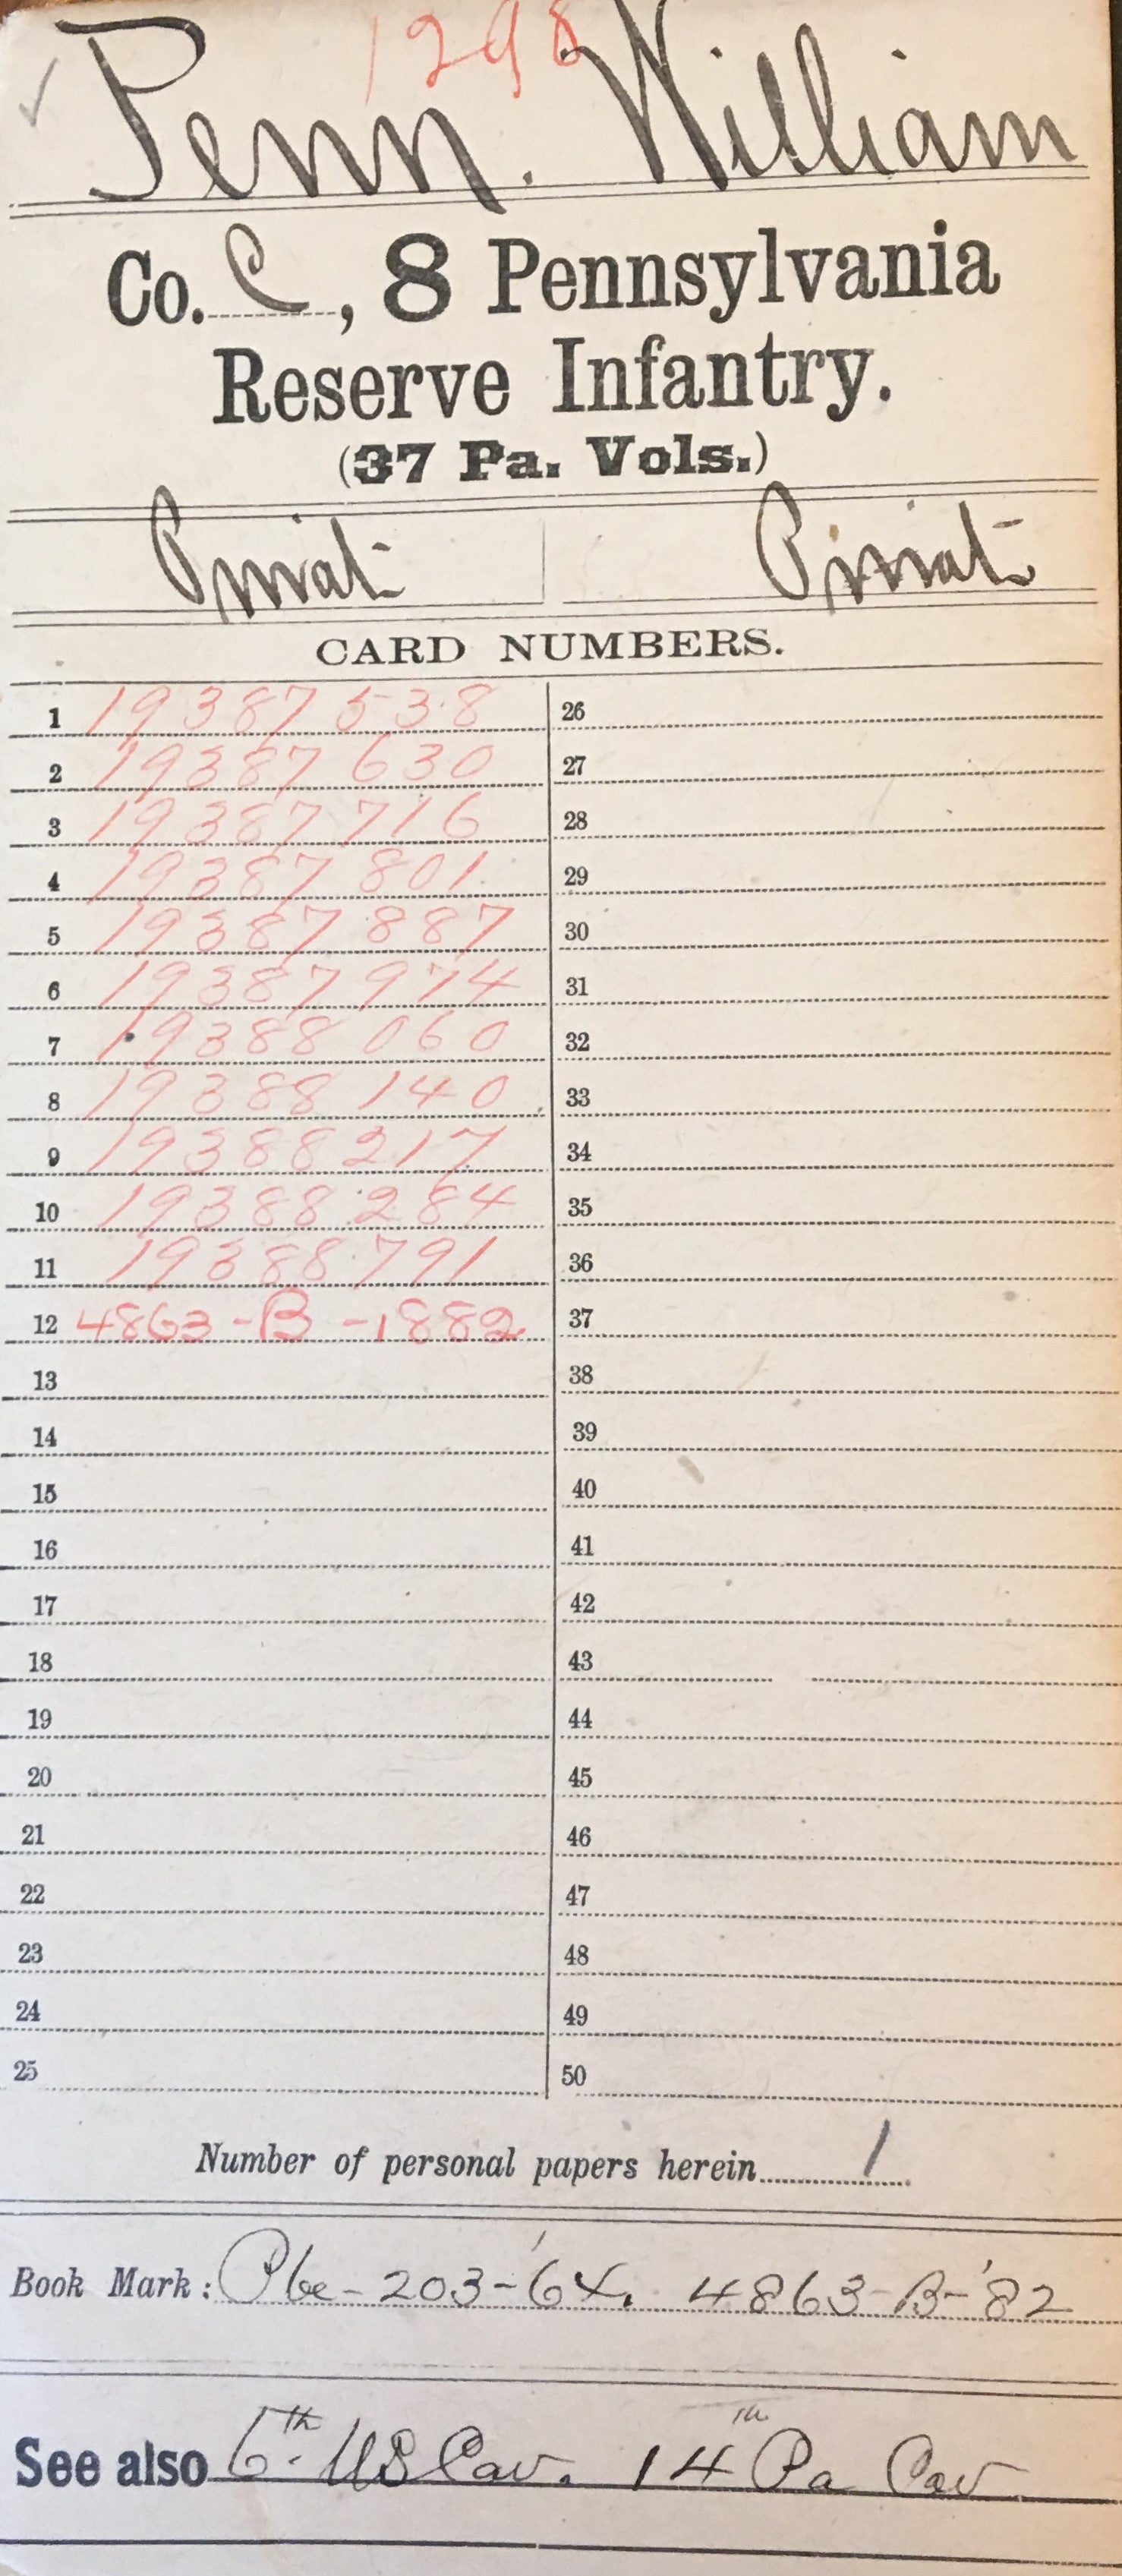 1298
Penn. William
Co. C, 8 Pennsylvania
Reserve Infantry.
(37 Pa. Vols.)
Privat Privat
CARD NUMBERS.
1 19387538 26
2 19387630 27
3 19387716 28
4 19387801 29
5 19387887 30
6 19387974 31
7 19388060 32
8 19388140 33
9 19388217 34
10 19388284 35
11 19388791 36
12 4863-B-1882 37
13 38
14 39
15 40
16 41
17 42
18 43
19 44
20 45
21 46
22 47
23 48
24 49
25 50
Number of personal papers herein 1
Book Mark: 203-'64. 4863-B-'82
See also 6th US Cav. 14th Pa Cav